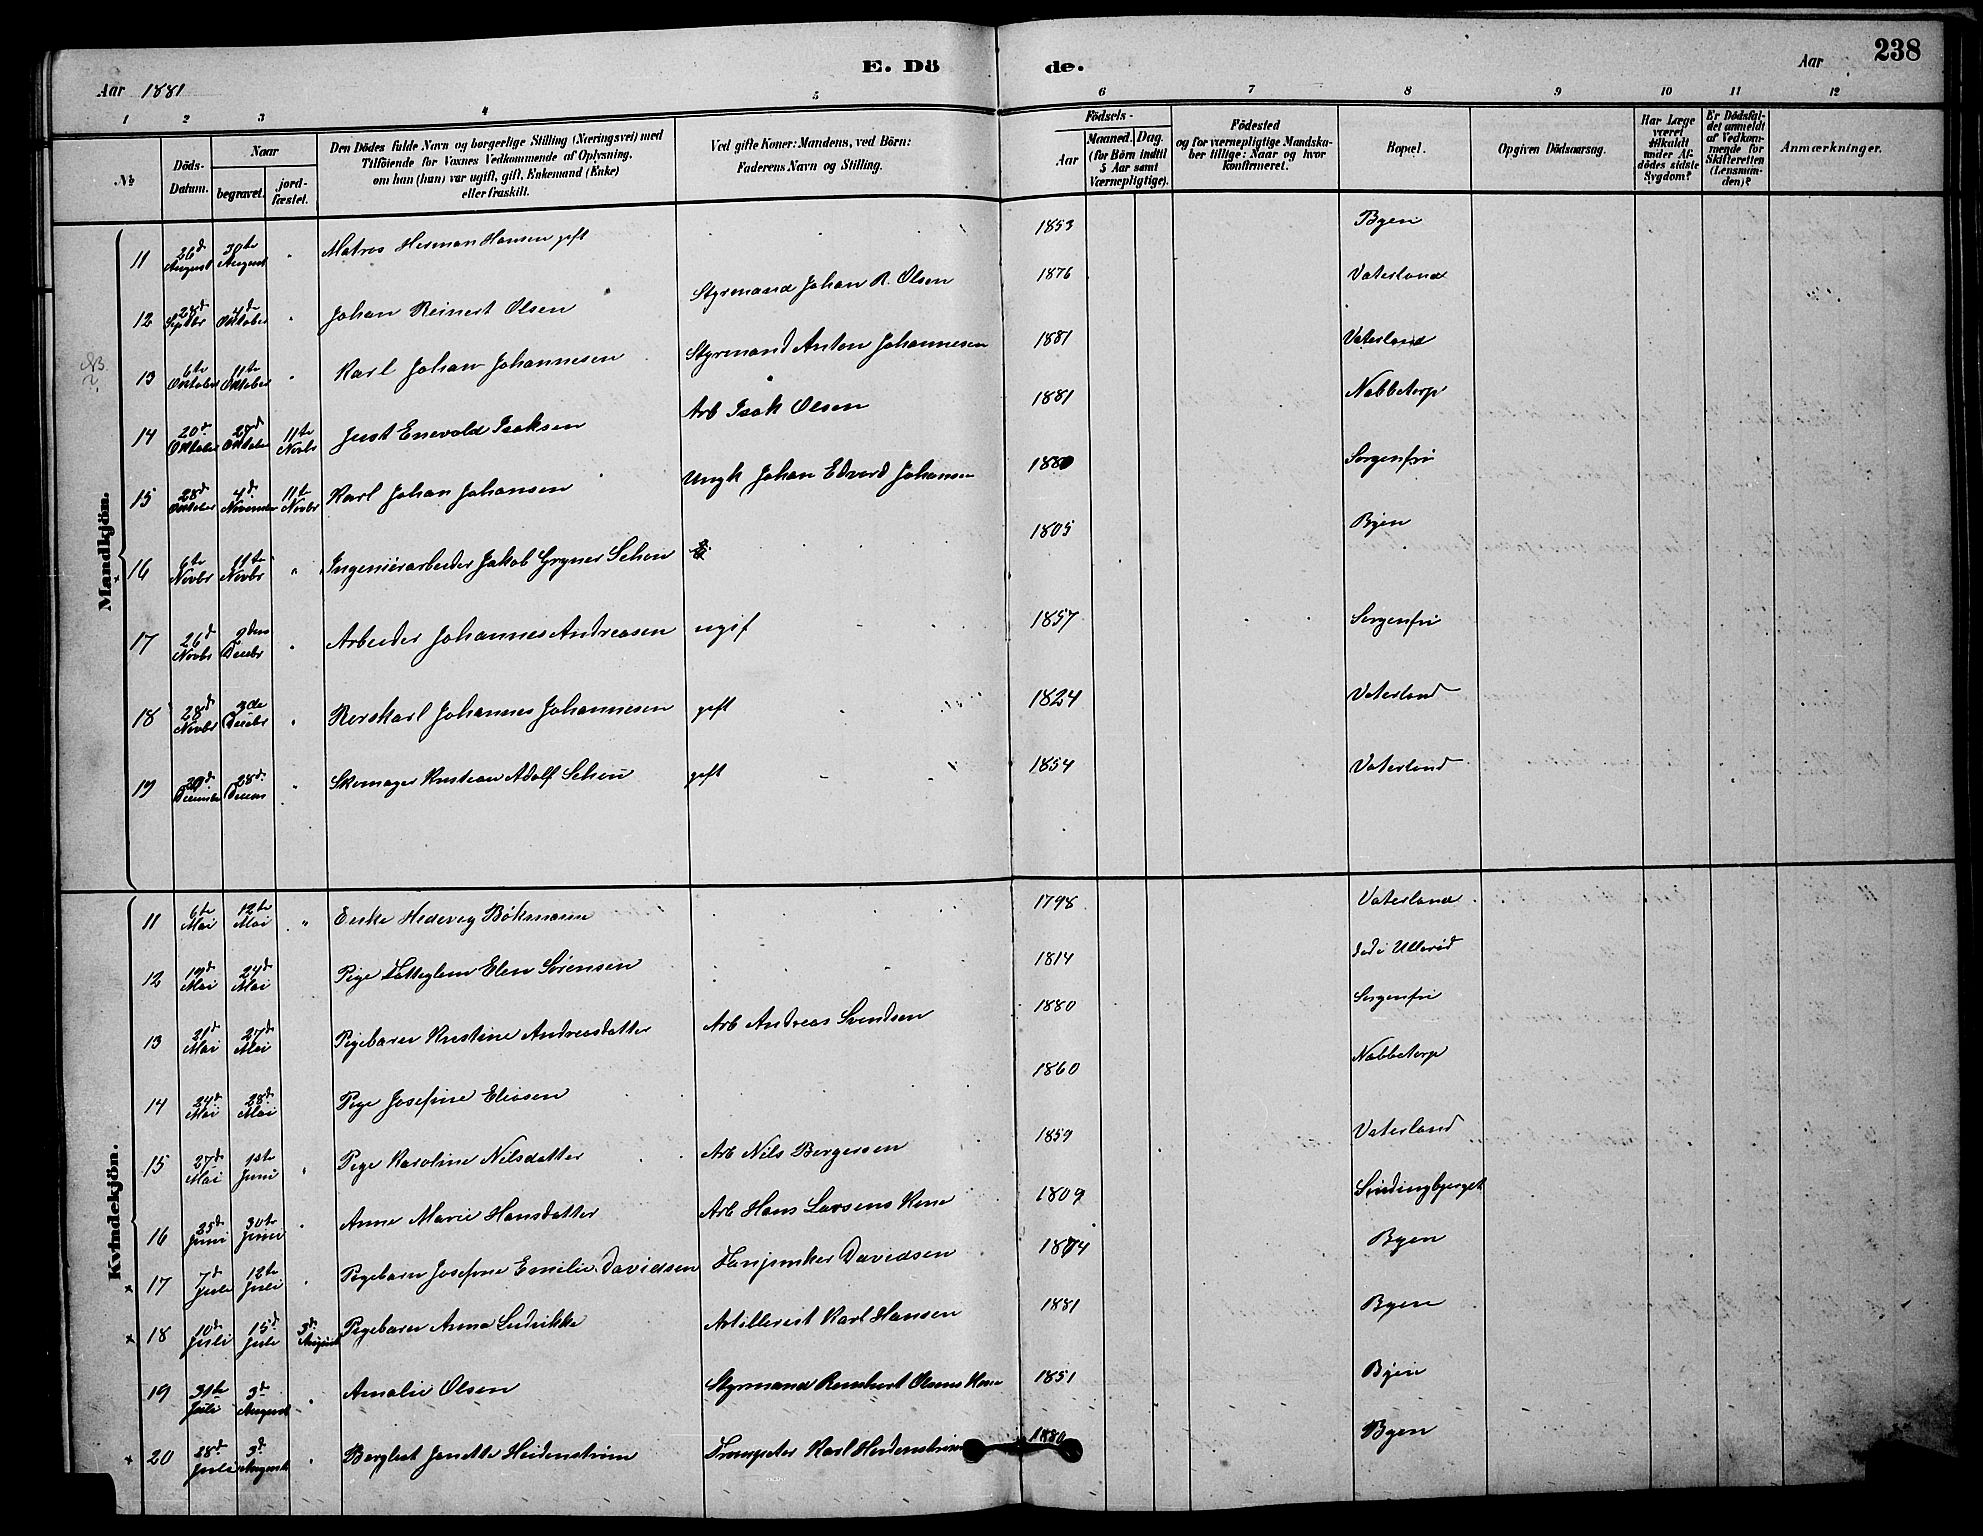 238
E. Dö de.
Aar 1881
Aar
1 2 3 4 5 6 7 8 9 10 11 12
№
Döds-Datum.
Naar
begravet.
jord-fæstet.
Den Dödes fulde Navn og borgerlige Stilling (Næringsvei) med
Tilföiende for Voxnes Vedkommende af Oplysning,
om han (hun) var ugift, gift, Enkemand (Enke)
eller fraskilt.
Ved gifte Koner: Mandens, ved Börn:
Faderens Navn og Stilling.
Födsels-
Aar
Maaned. Dag.
(for Börn indtil
5 Aar samt
Værnepligtige).
Födested
og for værnepligtige Mandska-
ber tillige: Naar og hvor
konfirmeret.
Bopæl.
Opgiven Dödsaarsag.
Har Læge
været
tilkaldt
under Af-
dödes sidste
Sygdom?
Er Dödsfal-
det anmeldt
af Vedkom-
mende for
Skifteretten
(Lensman-
den)?
Anmærkninger.
Mandkjön.
11 26d August 30te August " Matros Herman Hansen gift 1853 Byen
12 28d Septbr 4d Oktober " Johan Reinert Olsen Styrmand Johan R. Olsen 1876 Vaterland
13 6te Oktober 11te Oktober " Karl Johan Johannesen Styrmand Anton Johannesen 1881 Vaterland
14 20d Oktober 28d Oktober 11te Novbr Just Enevold Isaksen Arb Isak Olsen 1881 Nabbetorp
15 28d Oktober 4d November 11te Novbr Karl Johan Johansen Ungk Johan Edvard Johansen 1880 Sorgenfri
16 6te Novbr 11te Novbr " Ingeniörarbeider Jakob Gryner Schou 1805 Byen
17 26d Novbr 2den Decbr " Arbeider Johannes Andreasen ugif 1857 Sorgenfri
18 28d Novbr 3de Decbr " Rorskarl Johannes Johannesen gift 1824 Vaterland
19 20d December 28d " Skomager Kristian Adolf Schou gift 1854 Vaterland
Kvindekjön.
11 6te Mai 12te Mai " Enke Hedevig Bökmann 1798 Vaterland
12 19d Mai 24d Mai Pige Fatteglem Elen Sörensen 1814 Ulleröd
13 21d Mai 27d Mai Pigebarn Kristine Andreasdatter Arb Andreas Svendsen 1880 Sorgenfri
14 24d Mai 28d Mai Pige Josefine Eliasen 1860 Nabbetorp
15 27d Mai 1ste Juni " Pige Karoline Nilsdatter Arb Nils Bergersen 1859 Vaterland
16 25d Juni 30te Juni " Anne Marie Hansdatter Arb Hans Larsens Kone 1809 Smedingbjerget
17 7d Juli 12te Juli " Pigebarn Josefine Emilie Davidsen Fanjunker Davidsen 1874 Byen
18 10d Juli 15d Juli 3d August Pigebarn Anna Ludvikke Artillerist Karl Hansen 1881 Byen
19 31te Juli 3d August " Amalie Olsen Styrmand Reinhert Olsens Kone 1851 Byen
20 28d Juli 3d August " Bergliot Janette Heidenström Trompeter Karl Heidenström 1880 Byen